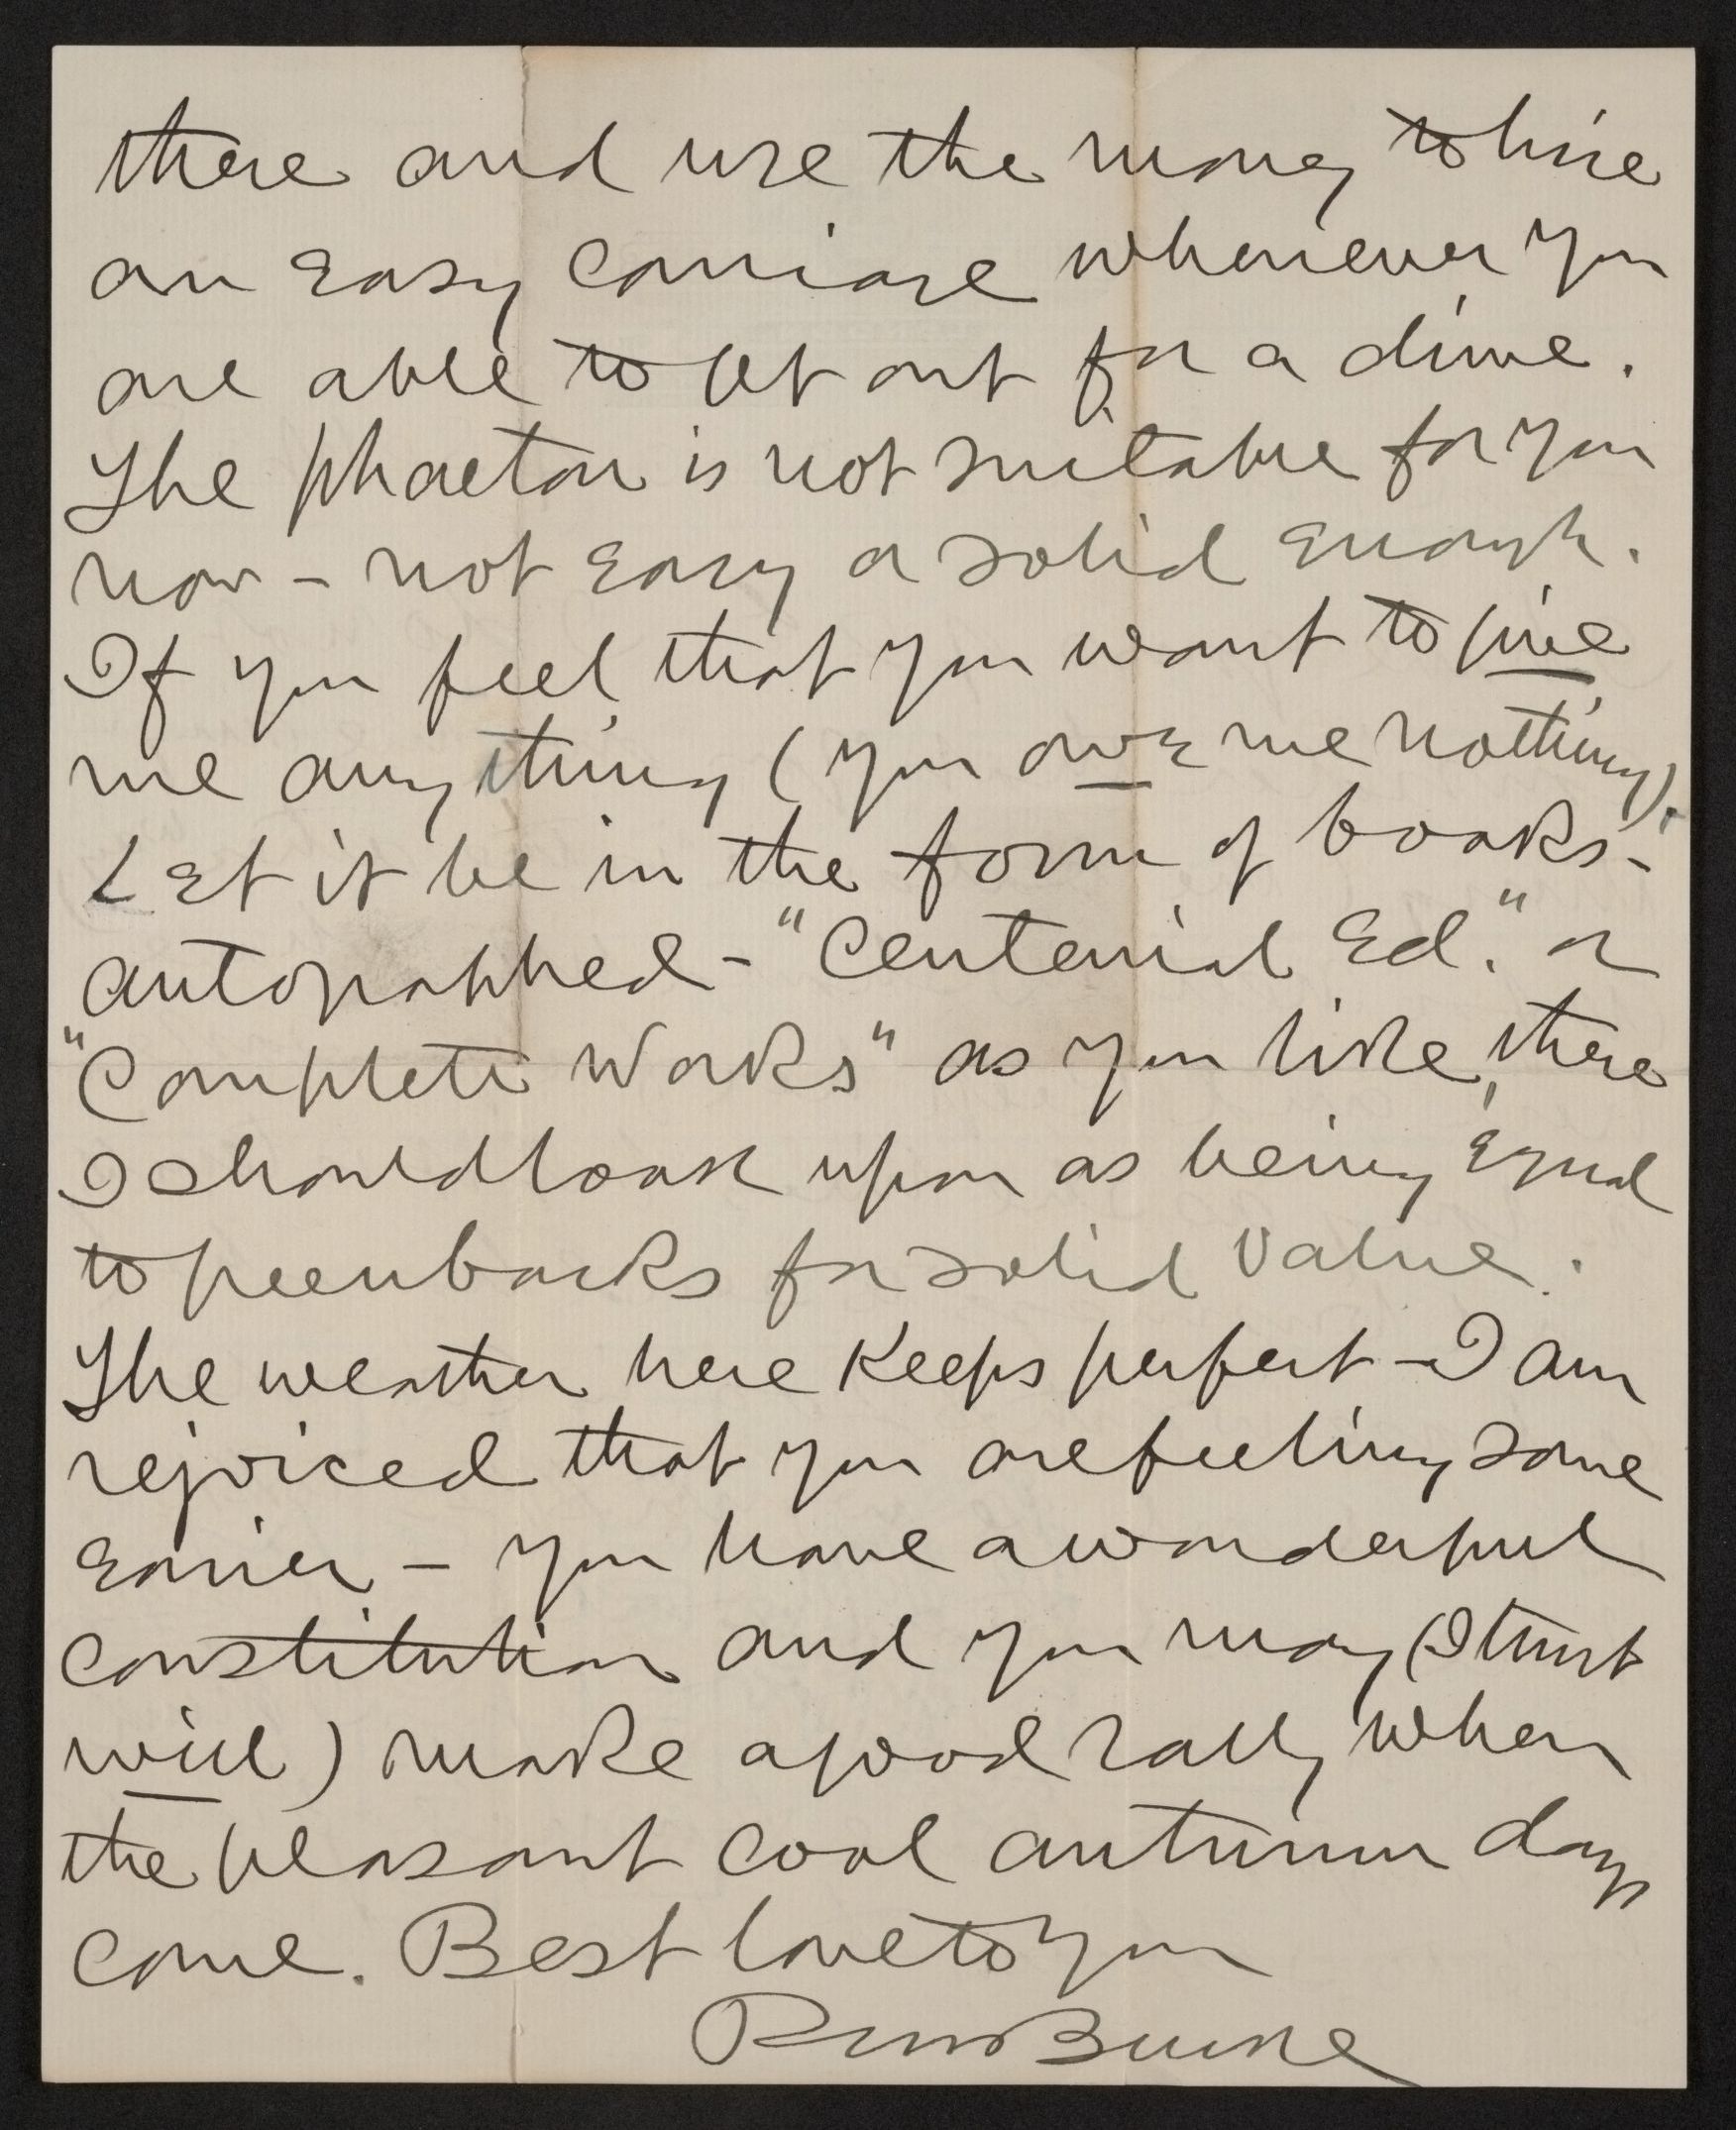 there and use the money to hire
an easy carriage whenever you
are able to get out for a drive.
The phaeton is not suitable for you
now – not easy or solid enough.
If you feel that you want to give
me anything (you owe me nothing),
Let it be in the form of books –
autographed – "Centenial Ed." or
"Complete Works" as you like, these
I should look upon as being equal
to greenbacks for solid value.
The weather here keeps perfect – I am
rejoiced that you are feeling some
easier – you have a wonderful
constitution and you may (I trust
will) make a good rally when
the pleasant cool autumn days
come. Best love to you
RM Bucke